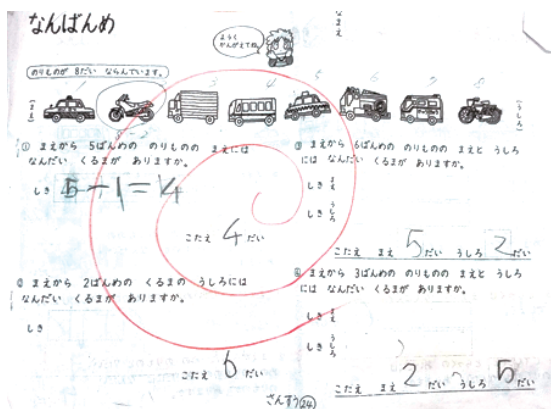 なんばんめ
なまえ
よーく
かんがえてね。
のりものが 8だい ならんでいます。
3 4 5 6 7 8
(まえ)
(うしろ)
① まえから 5ばんめの のりものの まえには
なんだい くるまが ありますか。
しき 5-1=4
こたえ 4 だい
② まえから 2ばんめの くるまの うしろには
なんだい くるまが ありますか。
しき
こたえ 6 だい
③ まえから 6ばんめの のりものの まえと うしろ
には なんだい くるまが ありますか。
しき まえ
しき うしろ
こたえ まえ 5 だい うしろ 2 だい
④ まえから 3ばんめの のりものの まえと うしろ
には なんだい くるまが ありますか。
しき まえ
しき うしろ
こたえ まえ 2 だい うしろ 5 だい
さんすう 24